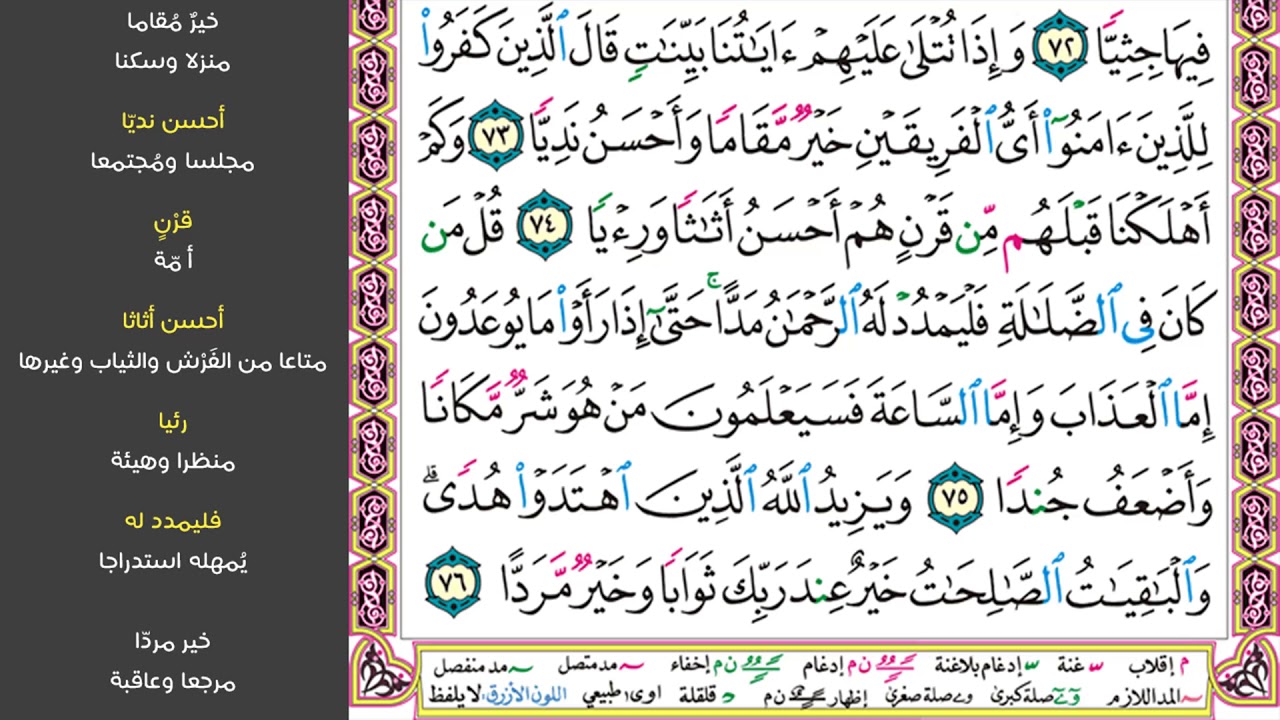 خيرٌ مُقاما
منزلا وسكنا
أحسن نديّا
مجلسا ومُجتمعا
قرْنٍ
أمّة
أحسن أثاثا
متاعا من الفَرْش والثياب وغيرها
رئيا
منظرا وهيئة
فليمدد له
يُمهله استدراجا
خير مردّا
مرجعا وعاقبة
فِيهَا جِثِيًّا ٧٢ وَإِذَا تُتْلَىٰ عَلَيْهِمْ ءَايَـٰتُنَا بَيِّنَـٰتٍ قَالَ ٱلَّذِينَ كَفَرُوا۟
لِلَّذِينَ ءَامَنُوٓا۟ أَىُّ ٱلْفَرِيقَيْنِ خَيْرٌ مَّقَامًا وَأَحْسَنُ نَدِيًّا ٧٣ وَكَمْ
أَهْلَكْنَا قَبْلَهُم مِّن قَرْنٍ هُمْ أَحْسَنُ أَثَـٰثًا وَرِءْيًا ٧٤ قُلْ مَن
كَانَ فِى ٱلضَّلَـٰلَةِ فَلْيَمْدُدْ لَهُ ٱلرَّحْمَـٰنُ مَدًّا ۚ حَتَّىٰٓ إِذَا رَأَوْا۟ مَا يُوعَدُونَ
إِمَّا ٱلْعَذَابَ وَإِمَّا ٱلسَّاعَةَ فَسَيَعْلَمُونَ مَنْ هُوَ شَرٌّ مَّكَانًا
وَأَضْعَفُ جُندًا ٧٥ وَيَزِيدُ ٱللَّهُ ٱلَّذِينَ ٱهْتَدَوْا۟ هُدًى ۗ
وَٱلْبَـٰقِيَـٰتُ ٱلصَّـٰلِحَـٰتُ خَيْرٌ عِندَ رَبِّكَ ثَوَابًا وَخَيْرٌ مَّرَدًّا ٧٦
م إقلاب ـّ غنة ـّ إدغام بلاغنة ن م إدغام ن م إخفاء ~ مد متصل ~ مد منفصل
~ المد اللازم و ے صلة كبرى و ے صلة صغرى إظهار ن م د قلقلة اوى طبيعي اللون الأزرق: لا يلفظ